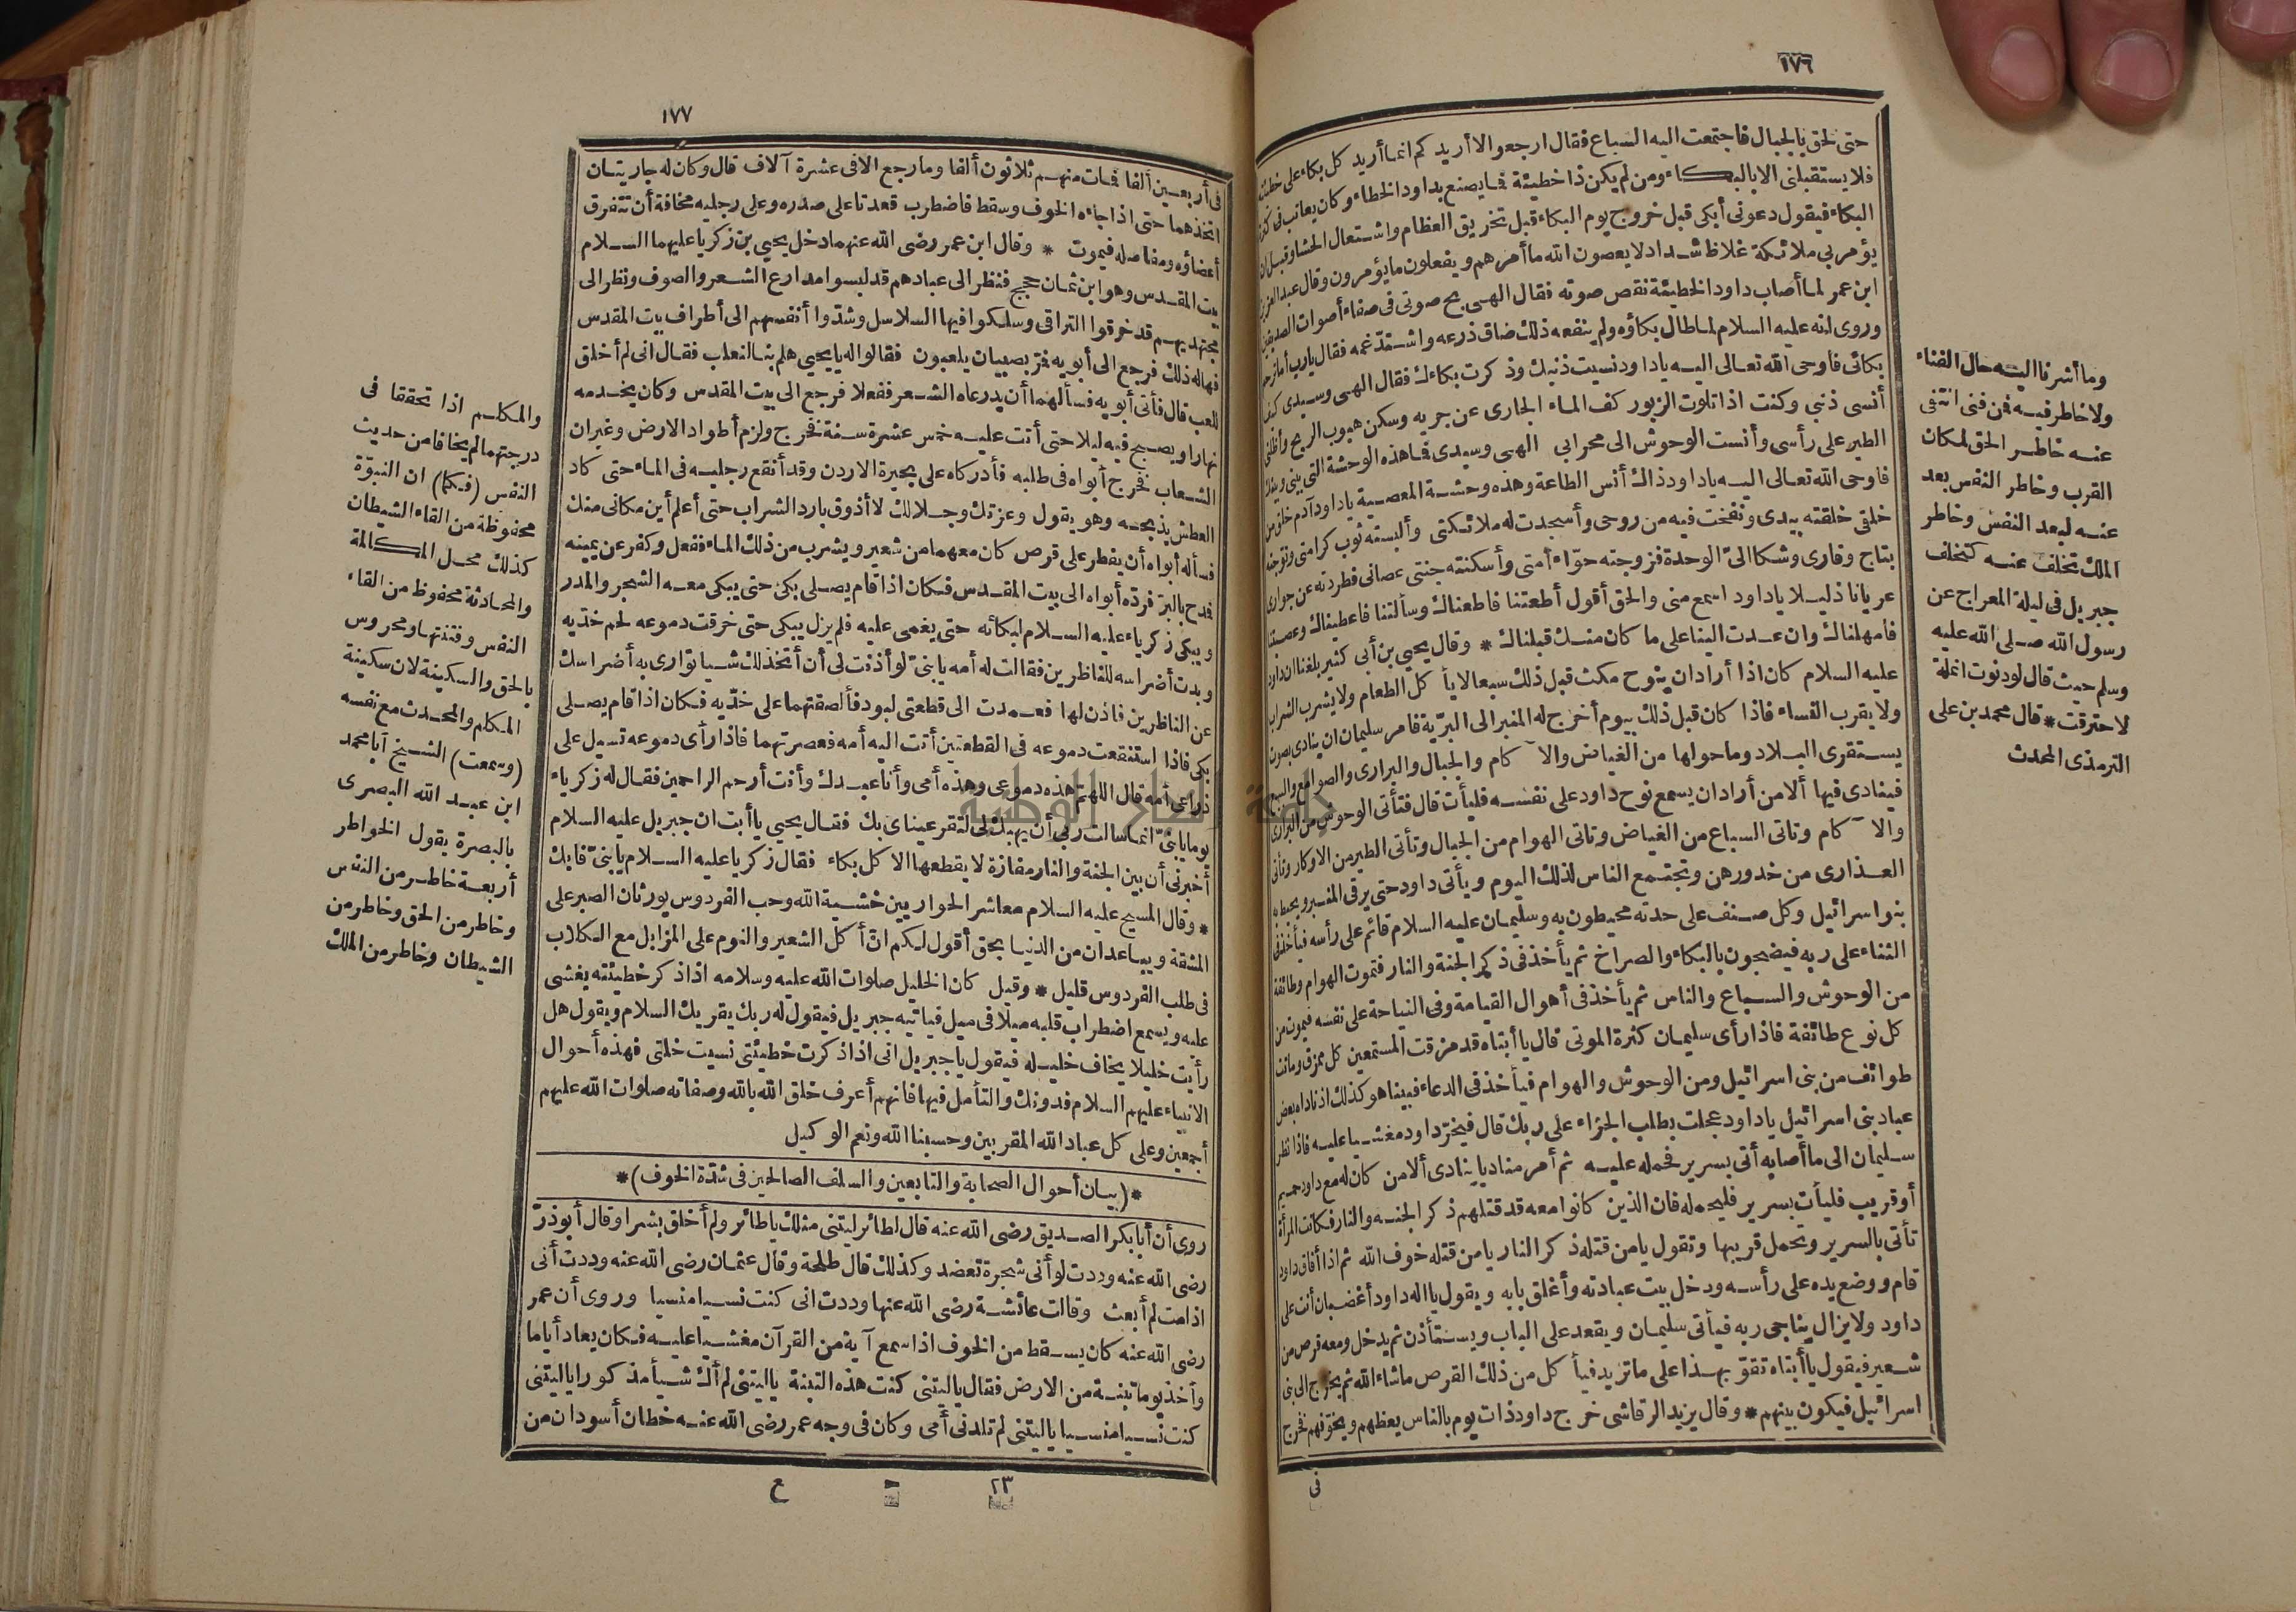 ١٧٦
حتى لحق بالجبال فاجتمعت اليه السباع فقال ارجعوا لا أريدكم انما أريد كل بكاء على خطيئته
فلا يستقبلنى الا بالبكاء ومن لم يكن ذا خطيئة فما يصنع بداود الخطاء وكان يعاتب فى كثرة
البكاء فيقول دعونى أبكى قبل خروج يوم البكاء قبل تخريق العظام واشتعال الحشا وقبل ان
يؤمر بى ملائكة غلاظ شداد لا يعصون الله ما أمرهم ويفعلون ما يؤمرون وقال عبد العزيز
ابن عمر لما أصاب داود الخطيئة نقص صوته فقال الهى بح صوتى فى صفاء أصوات الصديقين
وروى انه عليه السلام لما طال بكاؤه ولم ينفعه ذلك ضاق ذرعه واشتدّ غمه فقال يارب أما ترحم
بكائى فأوحى الله تعالى اليه ياداود نسيت ذنبك وذكرت بكاءك فقال الهى وسيدى كيف
أنسى ذنبى وكنت اذا تلوت الزبور كف الماء الجارى عن جريه وسكن هبوب الريح وأظلنى
الطير على رأسى وأنست الوحوش الى محرابى الهى وسيدى فما هذه الوحشة التى بينى وبينك
فاوحى الله تعالى اليه ياداود ذاك أنس الطاعة وهذه وحشة المعصية ياداود آدم خلق من
خلقى خلقته بيدى ونفخت فيه من روحى وأسجدت له ملائكتى وألبسته ثوب كرامتى وتوجته
بتاج وقارى وشكا الىّ الوحدة فزوجته حوّاء أمتى وأسكنته جنتى عصانى فطردته عن جوارى
عريانا ذليلا ياداود اسمع منى والحق أقول أطعتنا فاطعناك وسألتنا فاعطيناك وعصيتنا
فامهلناك وان عدت الينا على ما كان منك قبلناك * وقال يحيى بن أبى كثير بلغنا ان داود
عليه السلام كان اذا أراد ان ينوح مكث قبل ذلك سبعا لا يأكل الطعام ولا يشرب الشراب
ولا يقرب النساء فاذا كان قبل ذلك بيوم أخرج له المنبر الى البرّية فامر سليمان ان ينادى بصوت
يستقرى البلاد وما حولها من الغياض والآكام والجبال والبرارى والصوامع والبيع
فينادى فيها ألا من أراد ان يسمع نوح داود على نفسه فليأت قال فتأتى الوحوش من البرارى
والآكام وتاتى السباع من الغياض وتاتى الهوام من الجبال وتأتى الطير من الاوكار وتأتى
العذارى من خدورهن وتجتمع الناس لذلك اليوم ويأتى داود حتى يرقى المنبر ويحيط به
بنو اسرائيل وكل صنف على حدته محيطون به وسليمان عليه السلام قائم على رأسه فيأخذ فى
الثناء على ربه فيضجون بالبكاء والصراخ ثم يأخذ فى ذكر الجنة والنار فتموت الهوام وطائفة
من الوحوش والسباع والناس ثم يأخذ فى أهوال القيامة وفى النياحة على نفسه فيموت من
كل نوع طائفة فاذا رأى سليمان كثرة الموتى قال ياأبتاه قد مزقت المستمعين كل ممزق وماتت
طوائف من بنى اسرائيل ومن الوحوش والهوام فيأخذ فى الدعاء فبينا هو كذلك اذ ناداه بعض
عباد بنى اسرائيل ياداود عجلت بطلب الجزاء على ربك قال فيخرّ داود مغشيا عليه فاذا نظر
سليمان الى ما أصابه أتى بسرير فحمله عليه ثم أمر مناديا ينادى ألا من كان له مع داود حميم
أو قريب فليأت بسرير فليحمله فان الذين كانوا معه قد قتلهم ذكر الجنة والنار فكانت المرأة
تأتى بالسرير وتحمل قريبها وتقول يامن قتله ذكر النار يامن قتله خوف الله ثم اذا أفاق داود
قام ووضع يده على رأسه ودخل بيت عبادته وأغلق بابه ويقول ياإله داود أغضبان أنت على
داود ولا يزال يناجى ربه فيأتى سليمان ويقعد على الباب ويستأذن ثم يدخل ومعه قرص من
شعير فيقول ياأبتاه تقوّ بهذا على ما تريد فيأكل من ذلك القرص ماشاء الله ثم يخرج الى بنى
اسرائيل فيكون بينهم * وقال يزيد الرقاشى خرج داود ذات يوم بالناس يعظهم ويخوّفهم فخرج
فى
وما أشرنا اليه حال الفناء
ولا خاطر فيه فمن فنى انتفى
عنه خاطر الحق لمكان
القرب وخاطر النفس بعد
عنه لبعد النفس وخاطر
الملك تخلف عنه كتخلف
جبريل فى ليلة المعراج عن
رسول الله صلى الله عليه
وسلم حيث قال لو دنوت انملة
لاحترقت * قال محمد بن على
الترمذى المحدث
١٧٧
فى أربعين ألفا فمات منهم ثلاثون ألفا وما رجع الا فى عشرة آلاف قال وكان له جاريتان
اتخذهما حتى اذا جاءه الخوف وسقط فاضطرب قعدتا على صدره وعلى رجليه مخافة أن تتفرق
أعضاؤه ومفاصله فيموت * وقال ابن عمر رضى الله عنهما دخل يحيى بن زكريا عليهما السلام
بيت المقدس وهو ابن ثمان حجج فنظر الى عبادهم قد لبسوا مدارع الشعر والصوف ونظر الى
مجتهديهم قد خرقوا التراقى وسلكوا فيها السلاسل وشدّوا أنفسهم الى أطراف بيت المقدس
فهاله ذلك فرجع الى أبويه فمرّ بصبيان يلعبون فقالوا له يايحيى هلم بنا لنلعب فقال انى لم أخلق
للعب قال فأتى أبويه فسألهما أن يدرعاه الشعر ففعلا فرجع الى بيت المقدس وكان يخدمه
نهارا ويصبح فيه ليلا حتى أتت عليه خمس عشرة سنة فخرج ولزم أطواد الارض وغيران
الشعاب فخرج أبواه فى طلبه فأدركاه على بحيرة الاردن وقد أنقع رجليه فى الماء حتى كاد
العطش يذبحه وهو يقول وعزتك وجلالك لا أذوق بارد الشراب حتى أعلم أين مكانى منك
فسأله أبواه أن يفطر على قرص كان معهما من شعير ويشرب من ذلك الماء ففعل وكفر عن يمينه
فمدح بالبرّ فردّه أبواه الى بيت المقدس فكان اذا قام يصلى بكى حتى يبكى معه الشجر والمدر
ويبكى زكرياء عليه السلام لبكائه حتى يغمى عليه فلم يزل يبكى حتى خرقت دموعه لحم خدّيه
وبدت أضراسه للناظرين فقالت له أمه يابنىّ لو أذنت لى أن أتخذ لك شيا توارى به أضراسك
عن الناظرين فاذن لها فعمدت الى قطعتى لبود فألصقتهما على خدّيه فكان اذا قام يصلى
بكى فاذا استنقعت دموعه فى القطعتين أتت اليه أمه فعصرتهما فاذا رأى دموعه تسيل على
ذراعى أمه قال اللهمّ هذه دموعى وهذه أمى وأنا عبدك وأنت أرحم الراحمين فقال له زكرياء
يوما يابنىّ انما سالت ربى أن يهبك لى لتقر عيناى بك فقال يحيى ياأبت ان جبريل عليه السلام
أخبرنى أن بين الجنة والنار مفازة لا يقطعها الا كل بكاء فقال زكريا عليه السلام يابنىّ فابك
* وقال المسيح عليه السلام معاشر الحواريين خشية الله وحب الفردوس يورثان الصبر على
المشقة ويباعدان من الدنيا بحق أقول لكم انّ أكل الشعير والنوم على المزابل مع الكلاب
فى طلب الفردوس قليل * وقيل كان الخليل صلوات الله عليه وسلامه اذا ذكر خطيئته يغشى
عليه ويسمع اضطراب قلبه ميلا فى ميل فيأتيه جبريل فيقول له ربك يقرئك السلام ويقول هل
رأيت خليلا يخاف خليله فيقول ياجبريل انى اذا ذكرت خطيئتى نسيت خلتى فهذه أحوال
الانبياء عليهم السلام فدونك والتأمل فيها فانهم أعرف خلق الله بالله وصفاته صلوات الله عليهم
أجمعين وعلى كل عباد الله المقربين وحسبنا الله ونعم الوكيل
*(بيان أحوال الصحابة والتابعين والسلف الصالحين فى شدّة الخوف)*
روى أن أبابكر الصديق رضى الله عنه قال لطائر ليتنى مثلك ياطائر ولم أخلق بشرا وقال أبوذرّ
رضى الله عنه وددت لو أنى شجرة تعضد وكذلك قال طلحة وقال عثمان رضى الله عنه وددت أنى
اذامت لم أبعث وقالت عائشة رضى الله عنها وددت انى كنت نسيا منسيا وروى أن عمر
رضى الله عنه كان يسقط من الخوف اذا سمع آية من القرآن مغشيا عليه فكان يعاد أياما
وأخذ يوما تبنة من الارض فقال ياليتنى كنت هذه التبنة ياليتنى لم أك شيأ مذكورا ياليتنى
كنت نسيا منسيا ياليتنى لم تلدنى أمى وكان فى وجه عمر رضى الله عنه خطان أسودان من
٢٣ ع
والمكلم اذا تحققا فى
درجتهما لم يخافا من حديث
النفس (فكما) ان النبوّة
محفوظة من القاء الشيطان
كذلك محل المكالمة
والمحادثة محفوظ من القاء
النفس وفتنتها ومحروس
بالحق والسكينة لان سكينة
المكلم والمحدث مع نفسه
(وسمعت) الشيخ أبا محمد
ابن عبد الله البصرى
بالبصرة يقول الخواطر
أربعة خاطر من النفس
وخاطر من الحق وخاطر من
الشيطان وخاطر من الملك